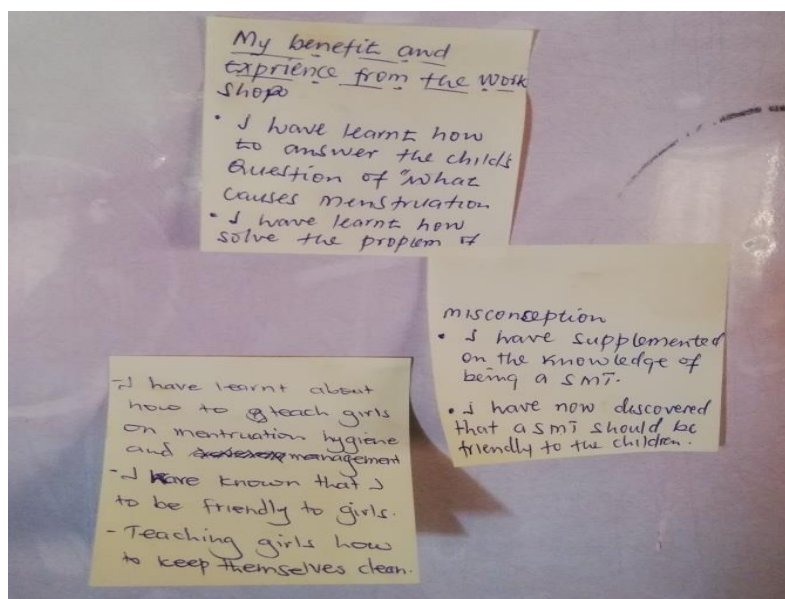 My benefit and
exprience from the work
shop
• I have learnt how
to answer the child's
question of "what
causes menstruation
• I have learnt how
solve the problem of
misconception
• I have supplemented
on the knowledge of
being a SMT.
• I have now discovered
that a SMT should be
friendly to the children.
- I have learnt about
how to teach girls
on mentruation hygiene
and management
- I have known that I
to be friendly to girls.
- Teaching girls how
to keep themselves clean.